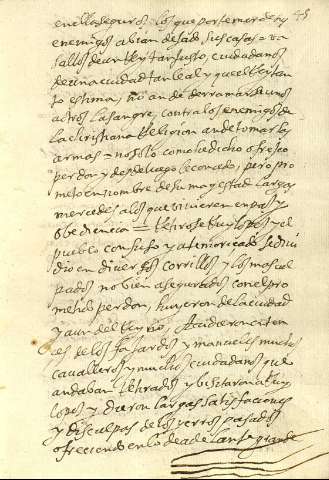 45
en ello seguros los que por temor de sus
enemigos abian dejado sus casas = va
sallos de un Rey tan justo, ciudadanos
de una ciudad tan leal y que el Rey tan
to estima, no an de derramar de unos
a otros la sangre, contra los enemigos de
la christiana Religion an de tomar las
armas = no solo como he dicho ofresco
perdon y desde luego le conçedo, pero pro
meto en nombre de su magestad largas
mercedes a los que vivieren en paz y
obediencia = Retirose Ruy lopez y el
pueblo confuso y atemoricado se divi
dio en diversos corrillos y los mas cul
pados no bien asegurados con el pro
metido perdon, huyeron de la ciudad
y aun del Reyno, Acudieron cien
de los fajardos y manueles muchos
cavalleros y muchos ciudadanos que
andaban Retirados y visitaron a Ruy
lopez y dieron largas satisfaciones
y disculpas de los yerros pasados
ofreciendo en lo de adelante grande